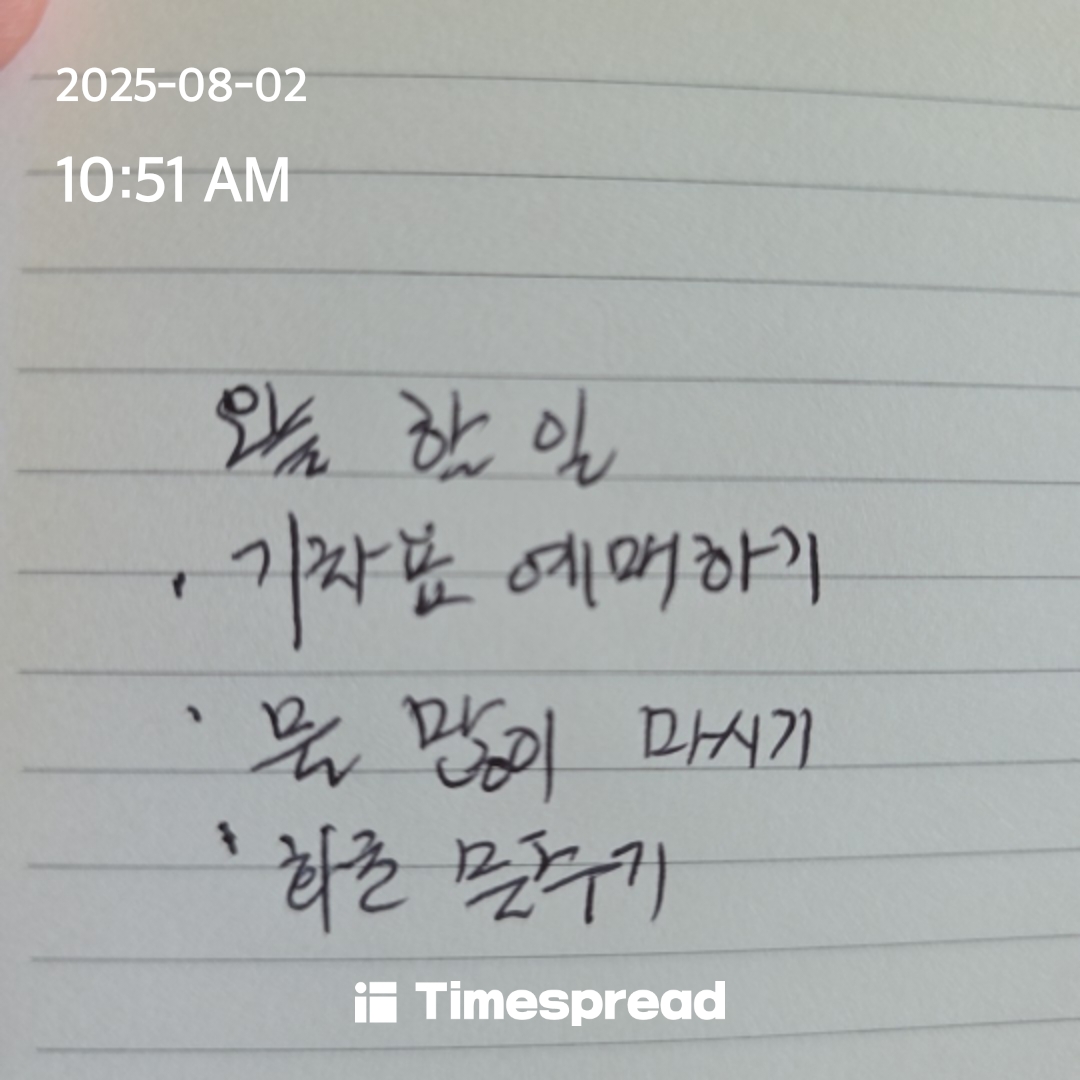 2025-08-02
10:51 AM
오늘 할 일
· 기차표 예매하기
· 물 많이 마시기
· 화글 맞추기
Timespread